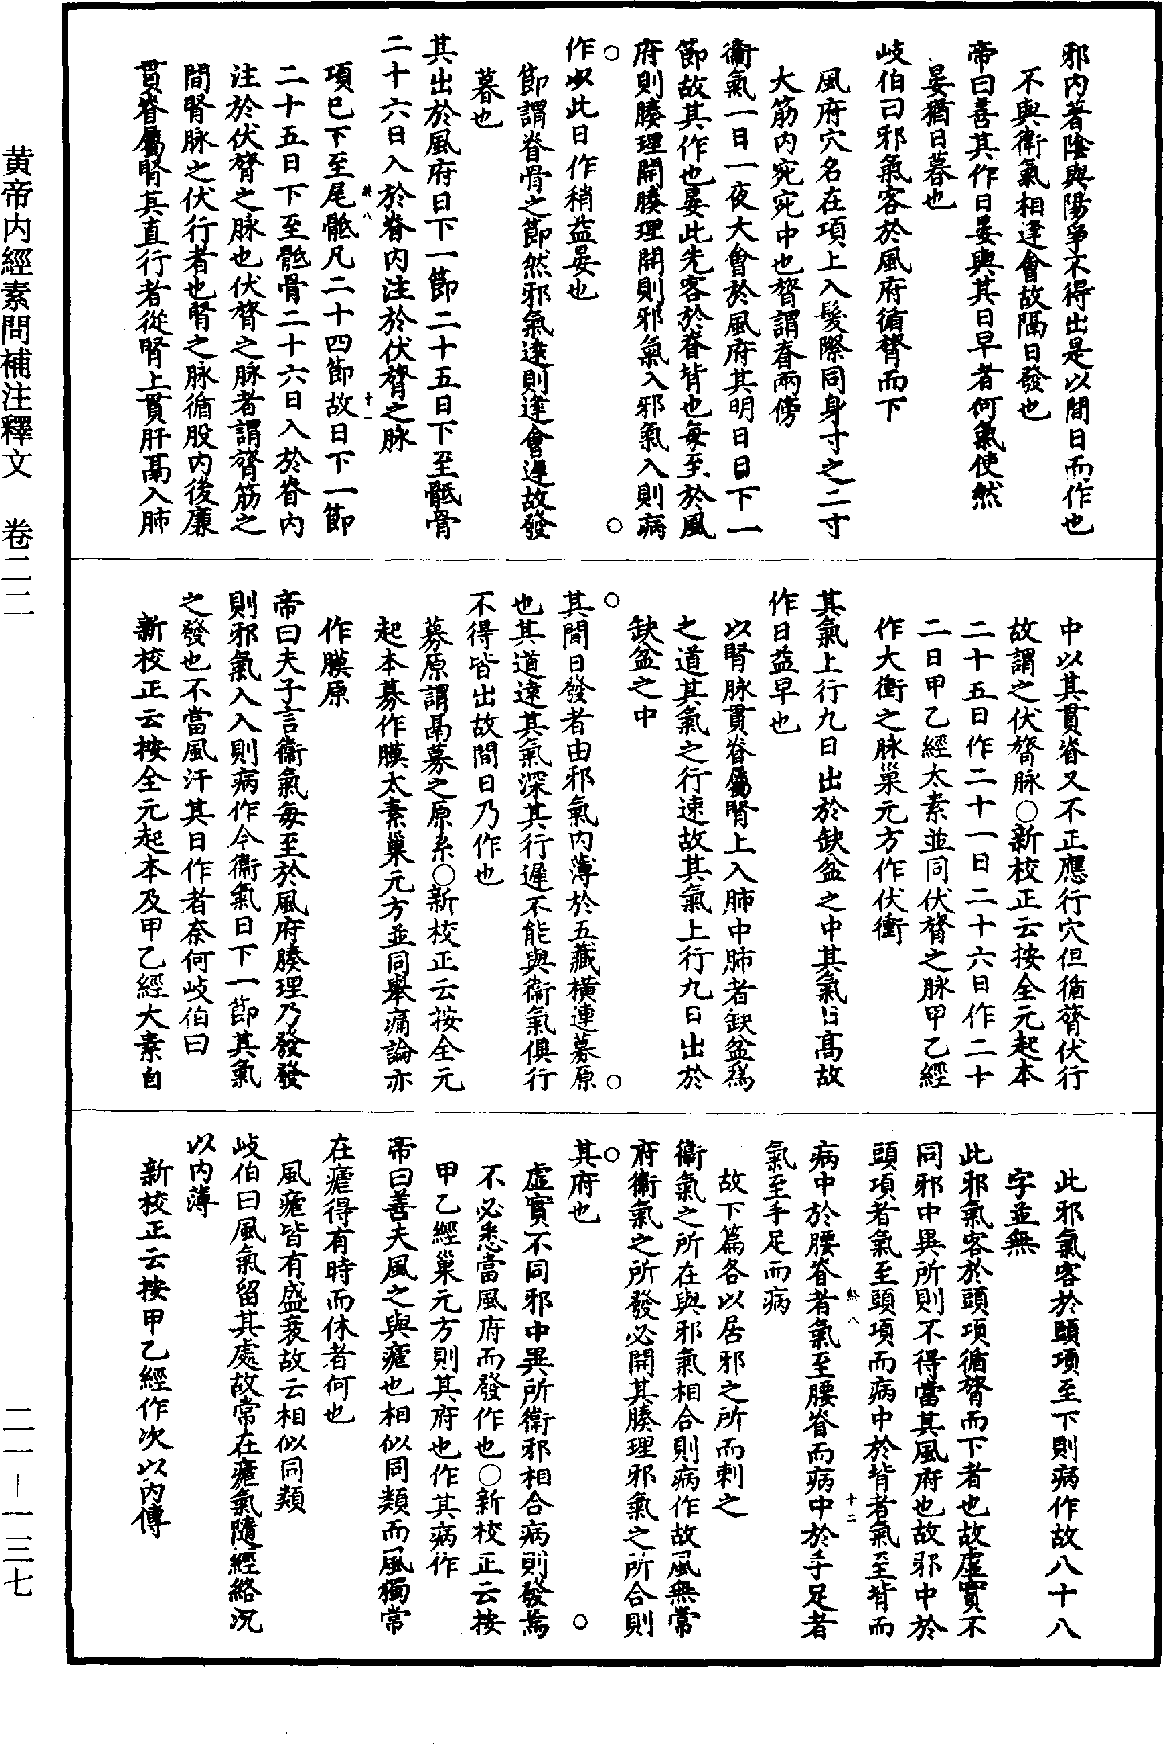 邪內著陰與陽爭不得出是以間日而作也
不與衛氣相逢會故隔日發也
帝曰善其作日晏與其日早者何氣使然
晏猶日暮也
岐伯曰邪氣客於風府循膂而下
風府穴名在項上入髮際同身寸之二寸
大筋內宛宛中也膂謂脊兩傍
衛氣一日一夜大會於風府其明日日下一
節故其作也晏此先客於脊背也每至於風
府則腠理開腠理開則邪氣入邪氣入則病
作以此日作稍益晏也
節謂脊骨之節然邪氣遠則逢會遲故發
暮也
其出於風府日下一節二十五日下至骶骨
二十六日入於脊內注於伏膂之脉
項已下至尾骶凡二十四節故日下一節
二十五日下至骶骨二十六日入於脊內
注於伏膂之脉也伏膂之脉者謂膂筋之
間腎脉之伏行者也腎之脉循股內後廉
貫脊屬腎其直行者從腎上貫肝鬲入肺
中以其貫脊又不正應行穴但循膂伏行
故謂之伏膂脉○新校正云按全元起本
二十五日作二十一日二十六日作二十
二日甲乙經太素並同伏膂之脉甲乙經
作大衝之脉巢元方作伏衝
其氣上行九日出於缺盆之中其氣日高故
作日益早也
以腎脉貫脊屬腎上入肺中肺者缺盆爲
之道其氣之行速故其氣上行九日出於
缺盆之中
其間日發者由邪氣內薄於五藏橫連募原
也其道遠其氣深其行遲不能與衛氣俱行
不得皆出故間日乃作也
募原謂鬲募之原系○新校正云按全元
起本募作膜太素巢元方並同舉痛論亦
作膜原
帝曰夫子言衛氣每至於風府腠理乃發發
則邪氣入入則病作今衛氣日下一節其氣
之發也不當風汗其日作者奈何岐伯曰
新校正云按全元起本及甲乙經大素自
此邪氣客於頭項至下則病作故八十八
字並無
此邪氣客於頭項循膂而下者也故虛實不
同邪中異所則不得當其風府也故邪中於
頭項者氣至頭項而病中於背者氣至背而
病中於腰脊者氣至腰脊而病中於手足者
氣至手足而病
故下篇各以居邪之所而刺之
衛氣之所在與邪氣相合則病作故風無常
府衛氣之所發必開其腠理邪氣之所合則
其府也
虛實不同邪中異所衛邪相合病則發焉
不必悉當風府而發作也○新校正云按
甲乙經巢元方則其府也作其病作
帝曰善夫風之與瘧也相似同類而風獨常
在瘧得有時而休者何也
風瘧皆有盛衰故云相似同類
岐伯曰風氣留其處故常在瘧氣隨經絡沉
以內薄
新校正云按甲乙經作次以內傳
黃帝內經素問補注釋文　卷二二
二一—一三七